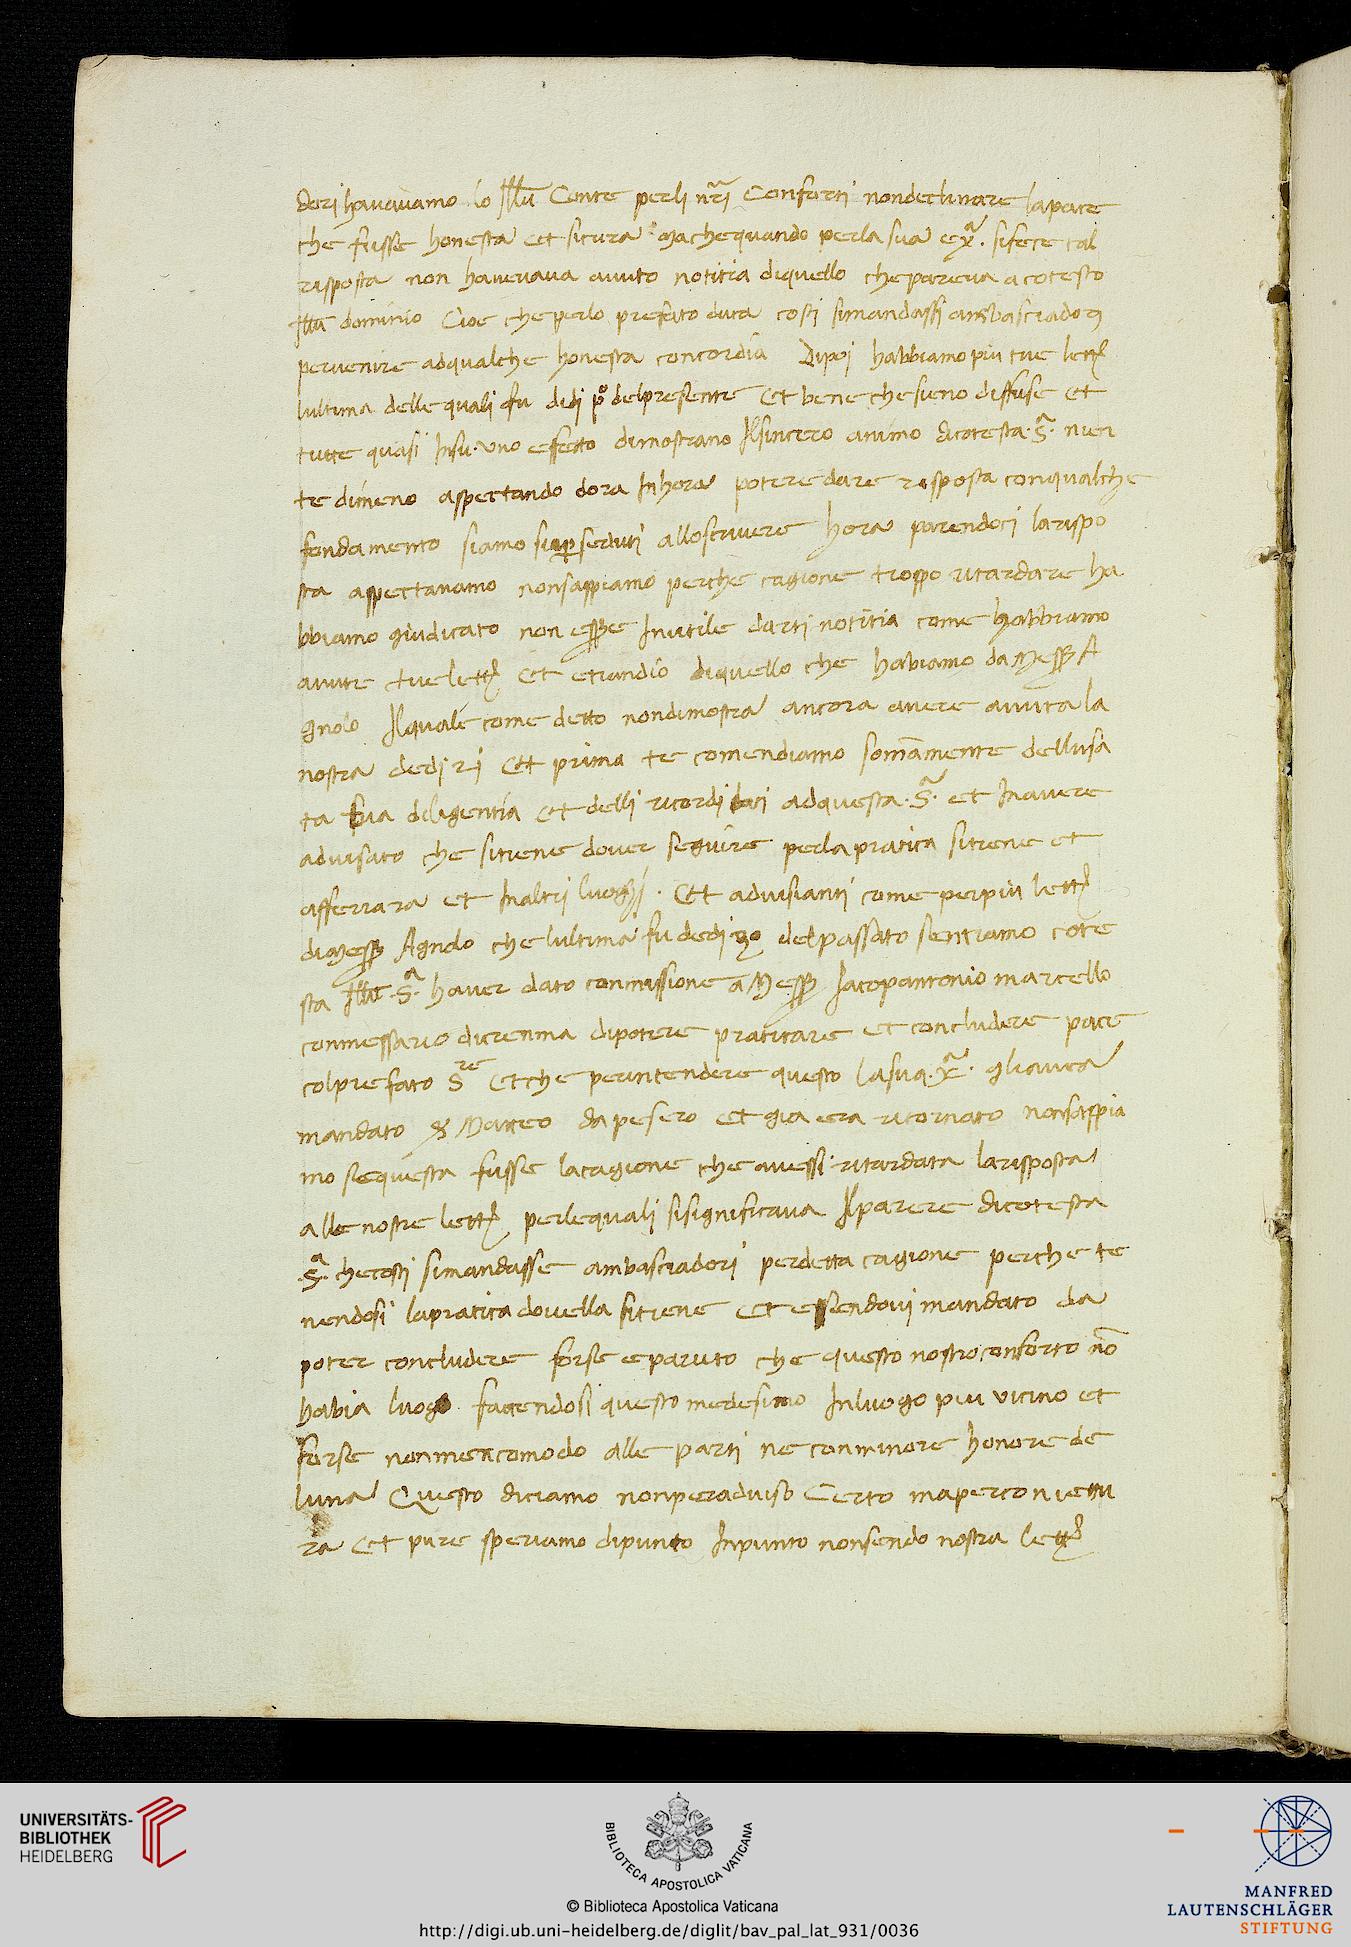 dori havavamo lo Illu͂ Conte perli nr̃i Conforti nondeclinare lapace
che fusse honesta et sicura machequando perla sua exᵃ. sifece tal
risposta non havevava auuto notitia diquello chepareva a cotesto
Illu͂ dominio Cioe cheperlo prefato duca costi simandassi ambasciadori
pervenire adqualche honesta concordia Dipoi habbiamo piu tue lettr̃
lultima dellequali fu didi pº delpresente et bene chesieno diffuse et
tutte quasi Insu. uno effetto dimostrano Ilsincero animo dicotesta .Sᵃ. nien
te dimeno aspectando dora Inhora potere dare risposta conqualche
fondamento siamo sup̲seduti alloscrivere hora parendoci larispo
sta aspectavamo nonsappiamo perche cagione troppo ritardare ha
bbiamo giudicato non esser̃e Inutile darti notitia come habbiamo
auute tue lettr̃ et etiandio diquello che habiamo da Messer̃ A
gnolo Ilquale come detto nondimostra ancora avere avuta la
nostra dedi 21 Et prima te comendiamo som̃amente dellusa
ta tua diligentia et delli ricordi dati adquesta .Sᵃ. et Inavere
advisato che sitiene dover seguire perla pratica sitiene et
afferrara et Inaltri luoghi. Et advisianti come perpiu lettr̃
dimesser̃ Agnolo che lultima fu dedi 30 delpassato sentiamo cote
sta Illu͂ .Sᵃ. haver dato commissione a Messer̃ Iacopantonio marcello
commessario dicremma dipotere praticare et concludere pace
colprefato Sʳᵉ et che perintendere questo lasua .xᵃ. gliavea
mandato S Matteo dapesero et gia era ritornato nonsappia
mo sequesta fusse lacagione che avessi ritardata larisposta
alle nostre lettr̃ perlequali sisignificava Ilparere dicotesta
.Sᵃ. checosti simandasse ambasciadori perdetta cagione perche te
nendosi lapratica dovella sitiene et essendovi mandato da
poter concludere forse eparuto che questo nostro conforto nõ
habia luogo faccendosi questo medesimo Inluogo piu vicino et
forse nonmen comodo alle parti ne conminore honore de
luna Questo diciamo nonperadviso Certo maperconiettu
ra et pure speriamo dipunto Inpunto nonsendo nostra lettr̃
UNIVERSITÄTS-
BIBLIOTHEK
HEIDELBERG
BIBLIOTECA APOSTOLICA VATICANA
© Biblioteca Apostolica Vaticana
http://digi.ub.uni-heidelberg.de/diglit/bav_pal_lat_931/0036
MANFRED
LAUTENSCHLÄGER
STIFTUNG